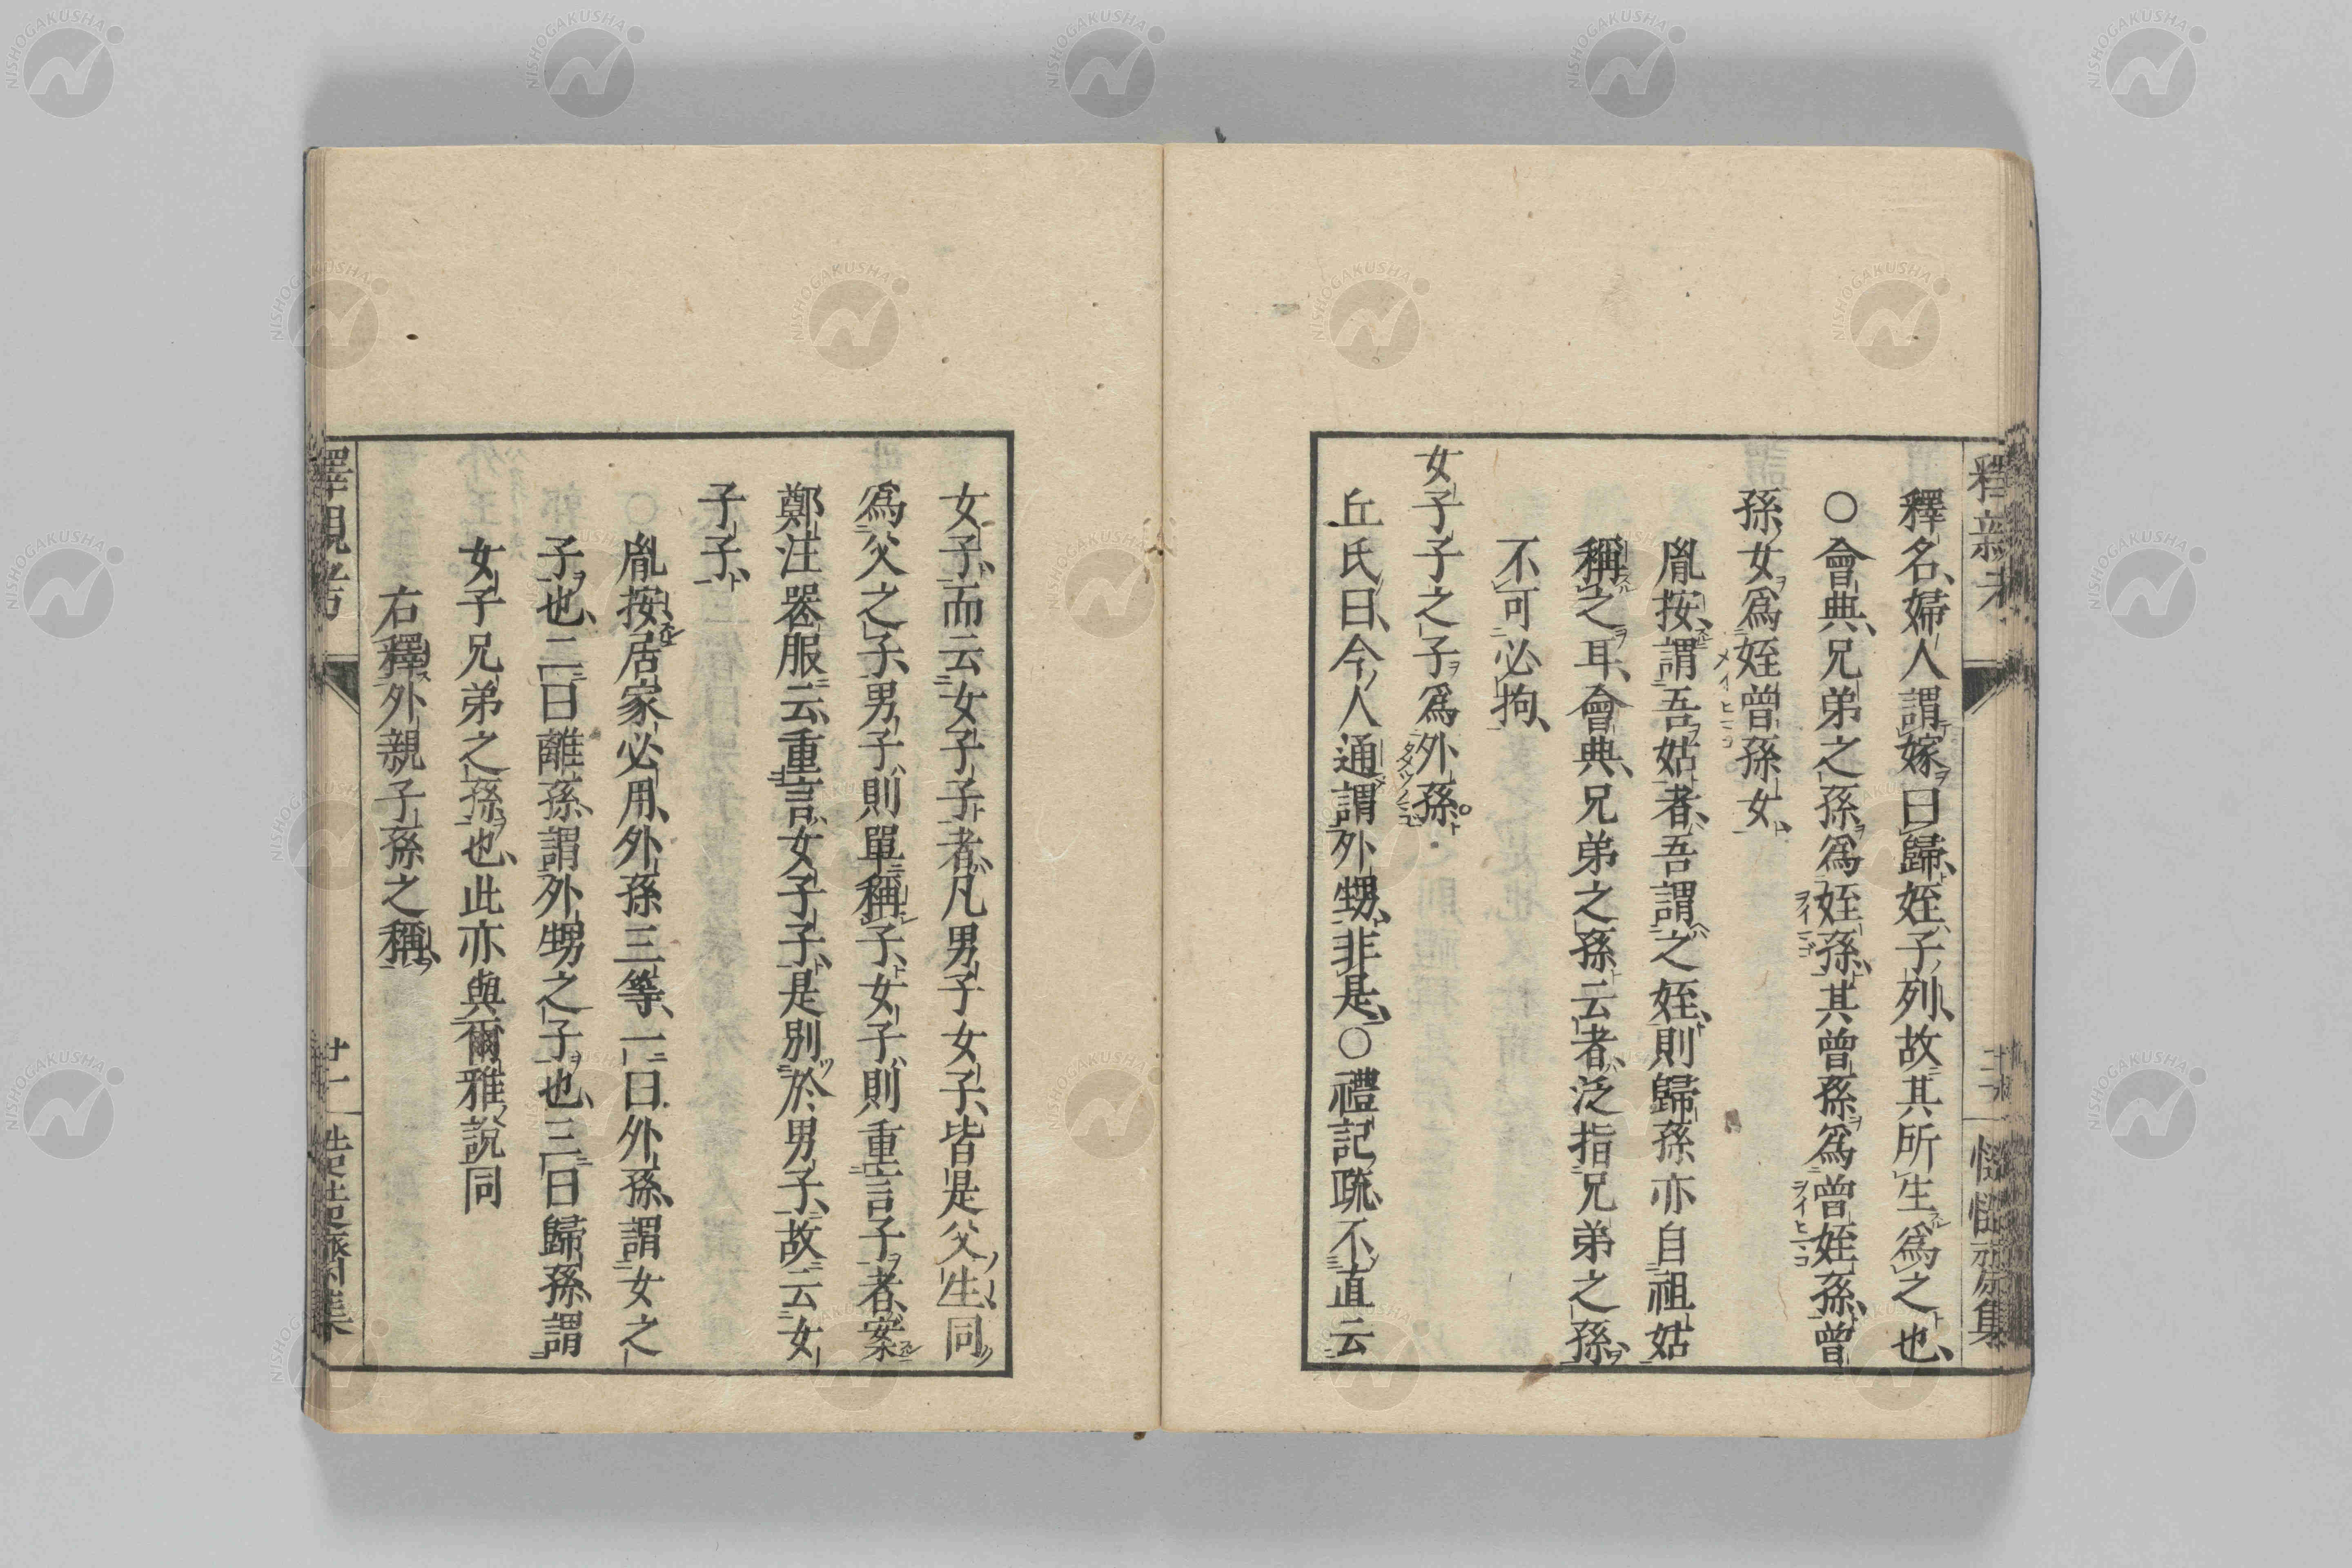 釋名、婦人謂嫁曰歸、姪子列、故其所生爲之也、
○會典、兄弟之孫爲姪孫、其曾孫爲曾姪孫、曾
孫女爲姪曾孫女、
胤按、謂吾姑者、吾謂之姪、則歸孫亦自祖姑
稱之耳、會典、兄弟之孫云者、泛指兄弟之孫、
不可必拘、
女子子之子爲外孫。
丘氏曰、今人通謂外甥、非是、○禮記疏、不直云
女子、而云女子子者、凡男子女子、皆是父生、同
爲父之子、男子則單稱子、女子則重言子者、案
鄭注器服云、重言女子子、是別於男子、故云女
子子、
胤按、居家必用、外孫三等、一曰外孫、謂女之
子也、二曰離孫、謂外甥之子也、三曰歸孫、謂
女子兄弟之孫也、此亦與爾雅說同
右釋外親子孫之稱、
釋親考
廿一